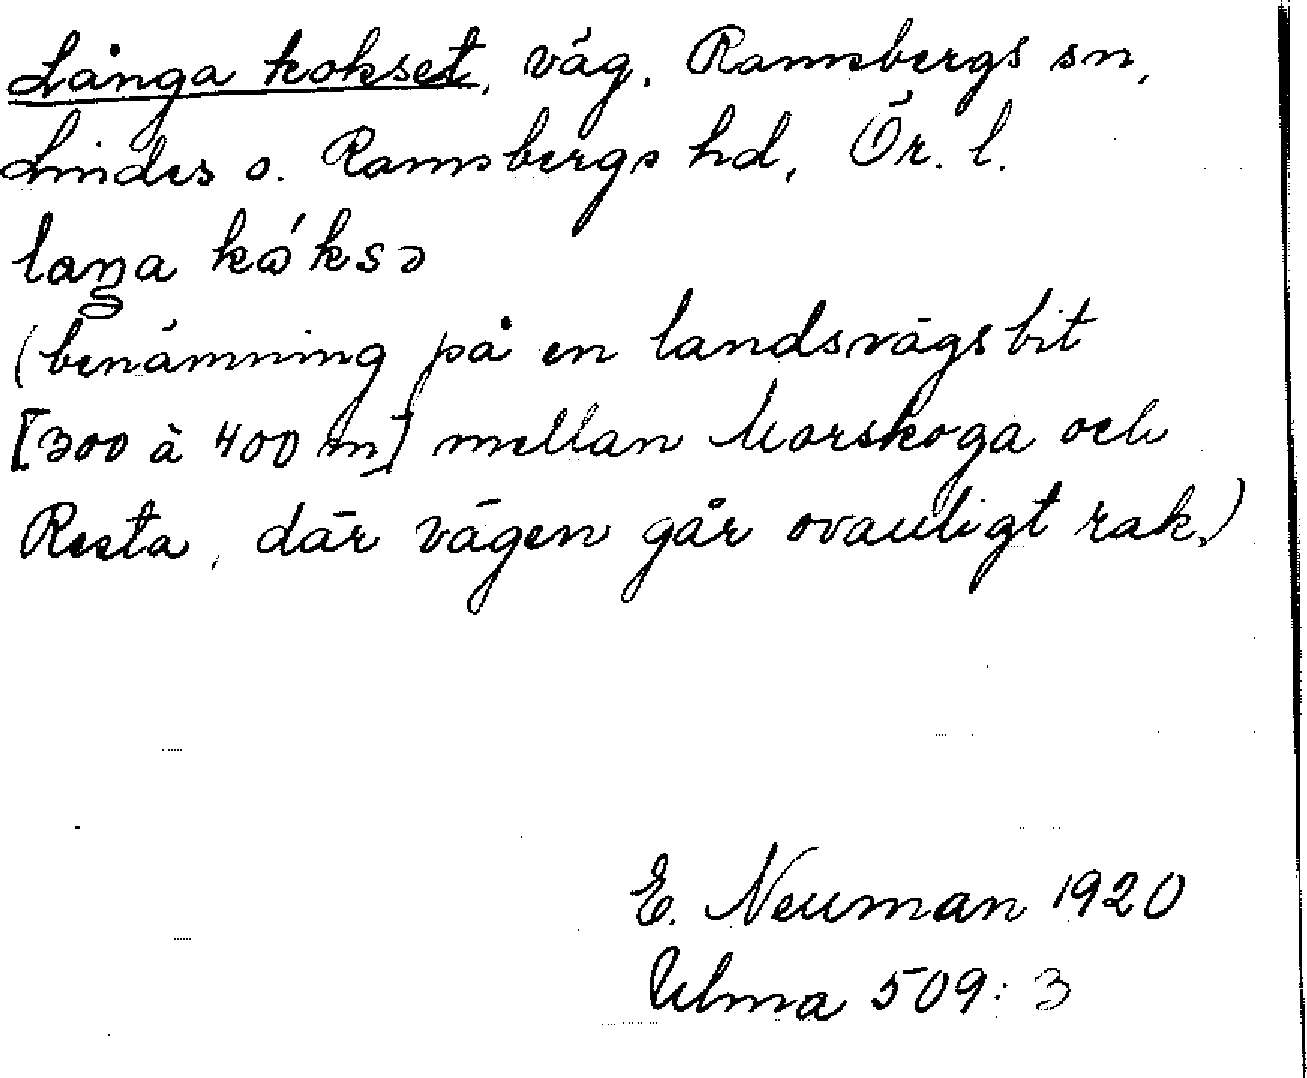 Långa kokset, väg. Ramsbergs sn,
Lindes o. Ramsbergs hd, Ör. l.
laŋa kóksə
(benämning på en landsvägsbit
[300 à 400 m] mellan Morskoga och
Resta, där vägen går ovanligt rak.)
E. Neuman 1920
Ulma 509:3